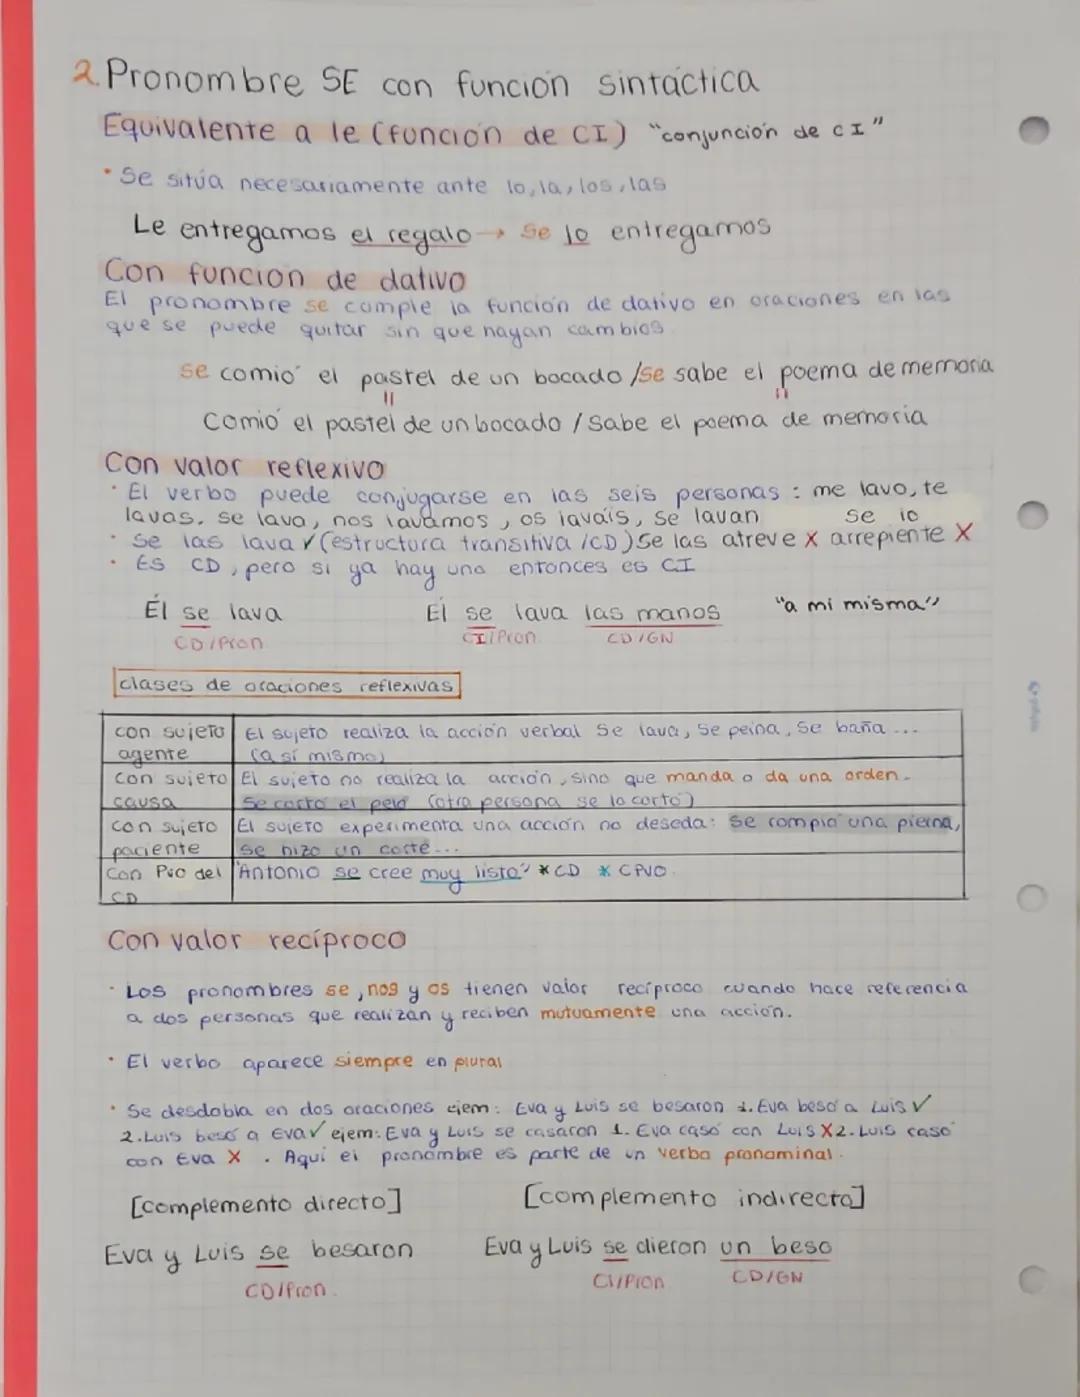 2. Pronombre SE con función sintáctica
Equivalente a le (función de CI) "conjunción de CI"
• Se sitúa necesariamente ante lo, la, los, las
Le entregamos el regalo → Se lo entregamos
Con función de dativo
El pronombre se cumple la función de dativo en oraciones en las
que se puede quitar sin que hayan cambios
Se comió el pastel de un bocado / Se sabe el poema de memoria
Comió el pastel de un bocado / Sabe el poema de memoria
Con valor reflexivo
• El verbo puede conjugarse en las seis personas : me lavo, te
lavas, se lava, nos lavamos, os laváis, se lavan
• Se las lava ✓ (estructura transitiva / CD) Se las atreve X se lo arrepiente X
• Es CD, pero si ya hay uno entonces es CI
Él se lava El se lava las manos "a mi misma"
CD/Pron CI/Pron CD/GN
clases de oraciones reflexivas
con sujeto agente El sujeto realiza la acción verbal Se lava, Se peina, Se baña ...
(a sí mismo)
con sujeto causa El sujeto no realiza la acción, sino que manda o da una orden.
Se cortó el pelo (otra persona se lo cortó)
con sujeto paciente El sujeto experimenta una acción no deseda: Se rompió una pierna,
se hizo un corte...
Con Pvo del CD "Antonio se cree muy listo" * CD * CPVO.
Con valor recíproco
• Los pronombres se, nos y os tienen valor recíproco cuando hace referencia
a dos personas que realizan y reciben mutuamente una acción.
• El verbo aparece siempre en plural
• Se desdobla en dos oraciones ejem: Eva y Luis se besaron 1. Eva besó a Luis ✓
2. Luis besó a Eva ✓ ejem: Eva y Luis se casaron 1. Eva casó con Luis X 2. Luis casó
con Eva X . Aquí el pronombre es parte de un verbo pronominal.
[complemento directo] [complemento indirecto]
Eva y Luis se besaron Eva y Luis se dieron un beso
CD/Pron. CI/Pron CD/GN